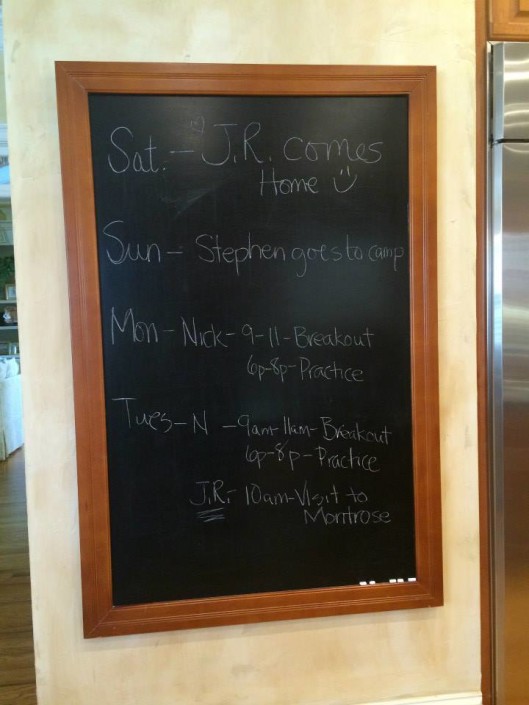 Sat. - J.R. comes
Home
Sun - Stephen goes to camp
Mon - Nick - 9-11 - Breakout
6p-8p - Practice
Tues - N - 9am-11am - Breakout
6p-8p - Practice
J.R. - 10am - Visit to
Montrose